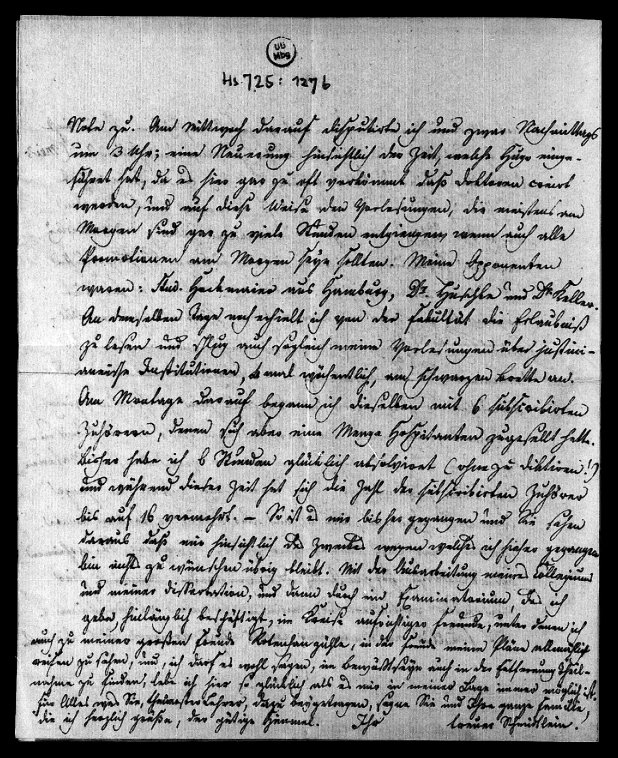 UB
Mbg
Hs. 725: 1276
Note zu. Am Mittwoch darauf disputirte ich und zwar Nachmittags
um 3 Uhr; eine Neuerung hinsichtlich der Zeit, welche Hugo einge-
führt hat, da es hier gar zu oft vorkömmt daß Doktoren creirt
werden, und auf diese Weise den Vorlesungen, die meistens am
Morgen sind gar zu viele Stunden entzogen, wenn auch alle
Promotionen am Morgen seyn sollten. Meine Opponenten
waren: Stud. Heckmaier aus Hamburg, Dr. Huschke und Dr. Keller.
An demselben Tage noch erhielt ich von der Fakultät die Erlaubniß
zu lesen und schlug auch sogleich meine Vorlesungen über justini-
anëische Institutionen, 6 mal wöchentlich, am schwarzen Brette an.
Am Montage darauf begann ich dieselben mit 6 subscribirten
Zuhörern, denen sich aber eine Menge Hospitanten zugesellt hatte.
Bisher habe ich 6 Stunden glücklich absolvirt (ohne zu diktiren!)
und während dieser Zeit hat sich die Zahl der subscribirten Zuhörer
bis auf 16 vermehrt. – So ist es mir bisher gegangen und Sie sehen
daraus daß mir hinsichtlich des Zweckes wegen welches ich hieher gegangen
bin nichts zu wünschen übrig bleibt. Mit der Ausarbeitung meines Collegiums
und meiner Dissertation, und dann durch ein Examinatorium, das ich
gebe hinlänglich beschäftigt, im Kreise aufrichtiger Freunde, unter denen ich
auch zu meiner großen Freude Rotenhan zähle, in der Freude meine Pläne allmählich
reifen zu sehen, und, ich darf es wohl sagen, im Bewußtseyn auch in der Entfernung Theil-
nahme zu finden, lebe ich hier so glücklich als es mir in meiner Lage immer möglich ist.
Für Alles was Sie, theuerster Lehrer, dazu beygetragen, segne Sie und Ihre ganze Familie,
die ich herzlich grüße, der gütige Himmel. Ihr treuer Schmidtlein.